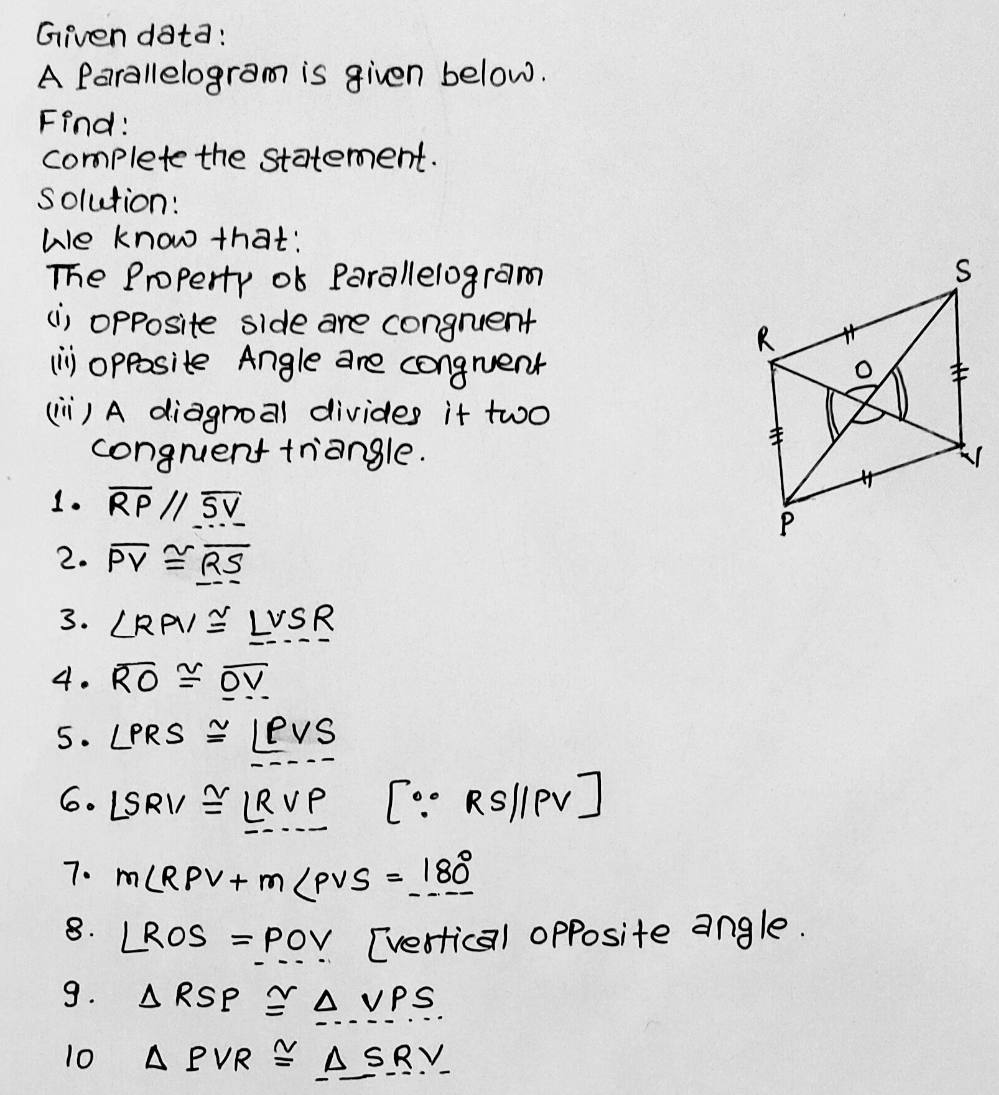 Given data:
A Parallelogram is given below.
Find:
complete the statement.
Solution:
We know that:
The Property of Parallelogram
(i) opposite side are congruent
(ii) opposite Angle are congruent
(iii) A diagnoal divides it two
congruent triangle.
1. RP // SV
2. PV ≅ RS
3. ∠RPV ≅ ∠VSR
4. RO ≅ OV
5. ∠PRS ≅ ∠PVS
6. ∠SRV ≅ ∠RVP [∵ RS||PV]
7. m∠RPV + m∠PVS = 180°
8. ∠ROS = POV [vertical opposite angle.
9. Δ RSP ≅ Δ VPS
10 Δ PVR ≅ Δ SRV
S
R
O
V
P